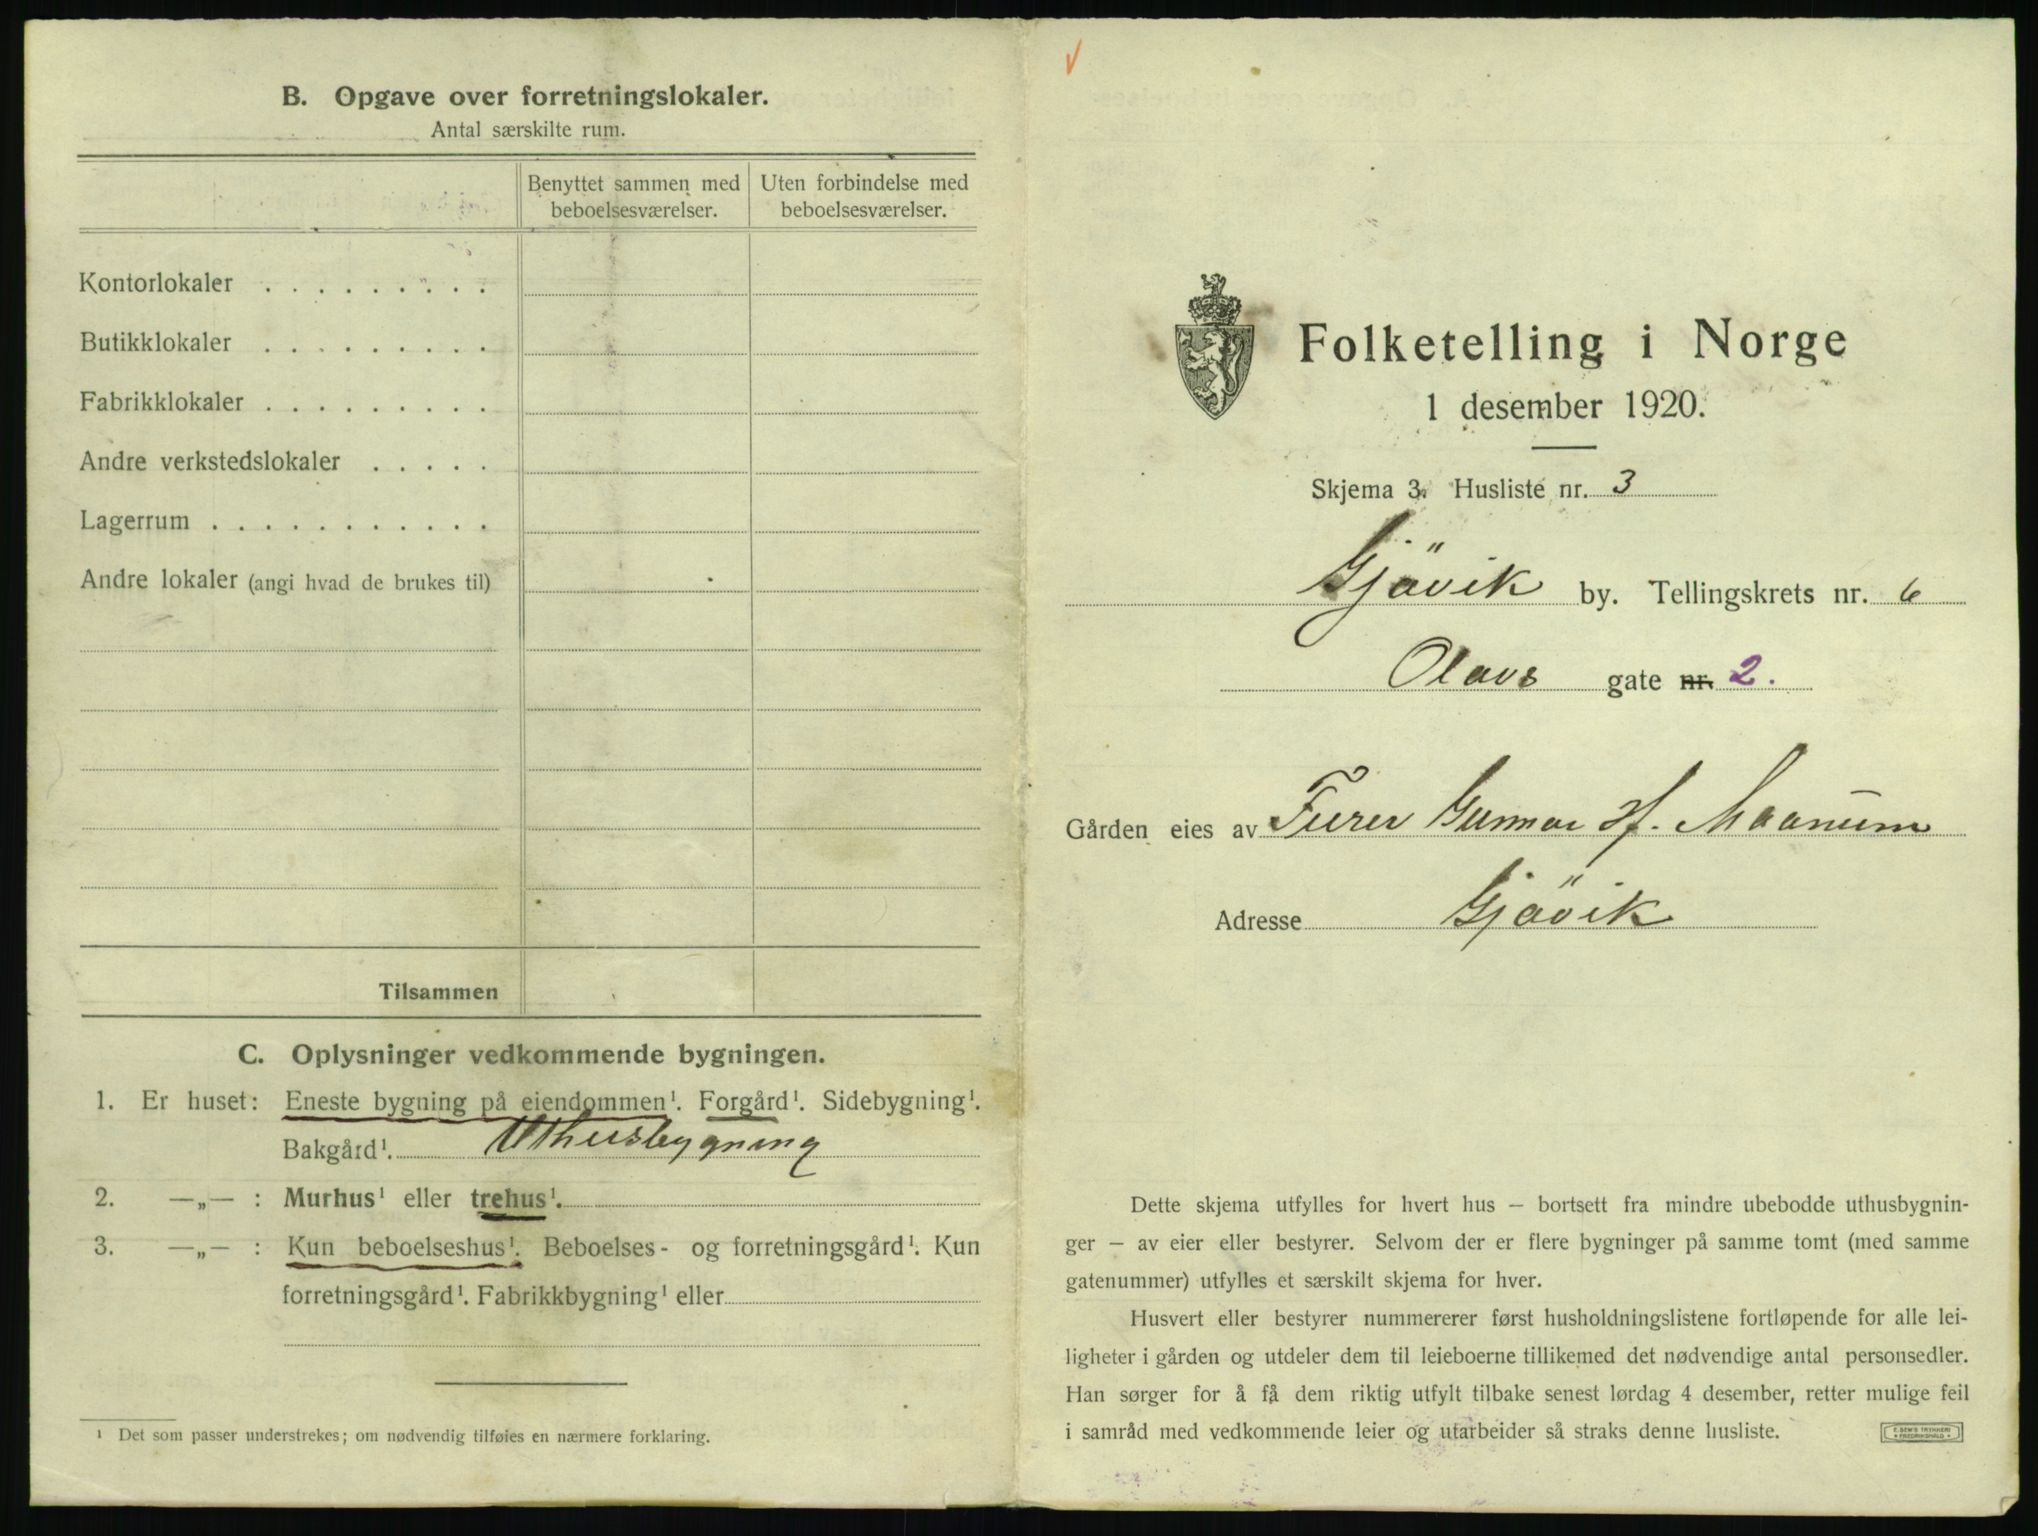 B. Opgave over forretningslokaler.
Antal særskilte rum.
Benyttet sammen med beboelsesværelser.
Uten forbindelse med beboelsesværelser.
Kontorlokaler . . . . . . . . .
Butikklokaler . . . . . . . . .
Fabrikklokaler . . . . . . . . .
Andre verkstedslokaler . . . . .
Lagerrum . . . . . . . . . . .
Andre lokaler (angi hvad de brukes til)
Tilsammen
C. Oplysninger vedkommende bygningen.
1. Er huset: Eneste bygning på eiendommen¹. Forgård¹. Sidebygning¹.
Bakgård¹. Uthusbygning
2. —„— : Murhus¹ eller trehus¹.
3. —„— : Kun beboelseshus¹. Beboelses- og forretningsgård¹. Kun
forretningsgård¹. Fabrikkbygning¹ eller
¹ Det som passer understrekes; om nødvendig tilføies en nærmere forklaring.
Folketelling i Norge
1 desember 1920.
Skjema 3. Husliste nr. 3
Gjövik by. Tellingskrets nr. 6
Olavs gate nr. 2.
Gården eies av Furer Gunnar Maanum
Adresse Gjövik
Dette skjema utfylles for hvert hus – bortsett fra mindre ubebodde uthusbygnin-
ger – av eier eller bestyrer. Selvom der er flere bygninger på samme tomt (med samme
gatenummer) utfylles et særskilt skjema for hver.
Husvert eller bestyrer nummererer først husholdningslistene fortløpende for alle lei-
ligheter i gården og utdeler dem til leieboerne tillikemed det nødvendige antal personsedler.
Han sørger for å få dem riktig utfylt tilbake senest lørdag 4 desember, retter mulige feil
i samråd med vedkommende leier og utarbeider så straks denne husliste.
E. SEM'S TRYKKERI
FREDRIKSHALD